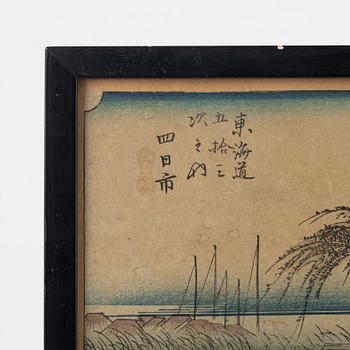 東海道
五拾三
次之内
四日市